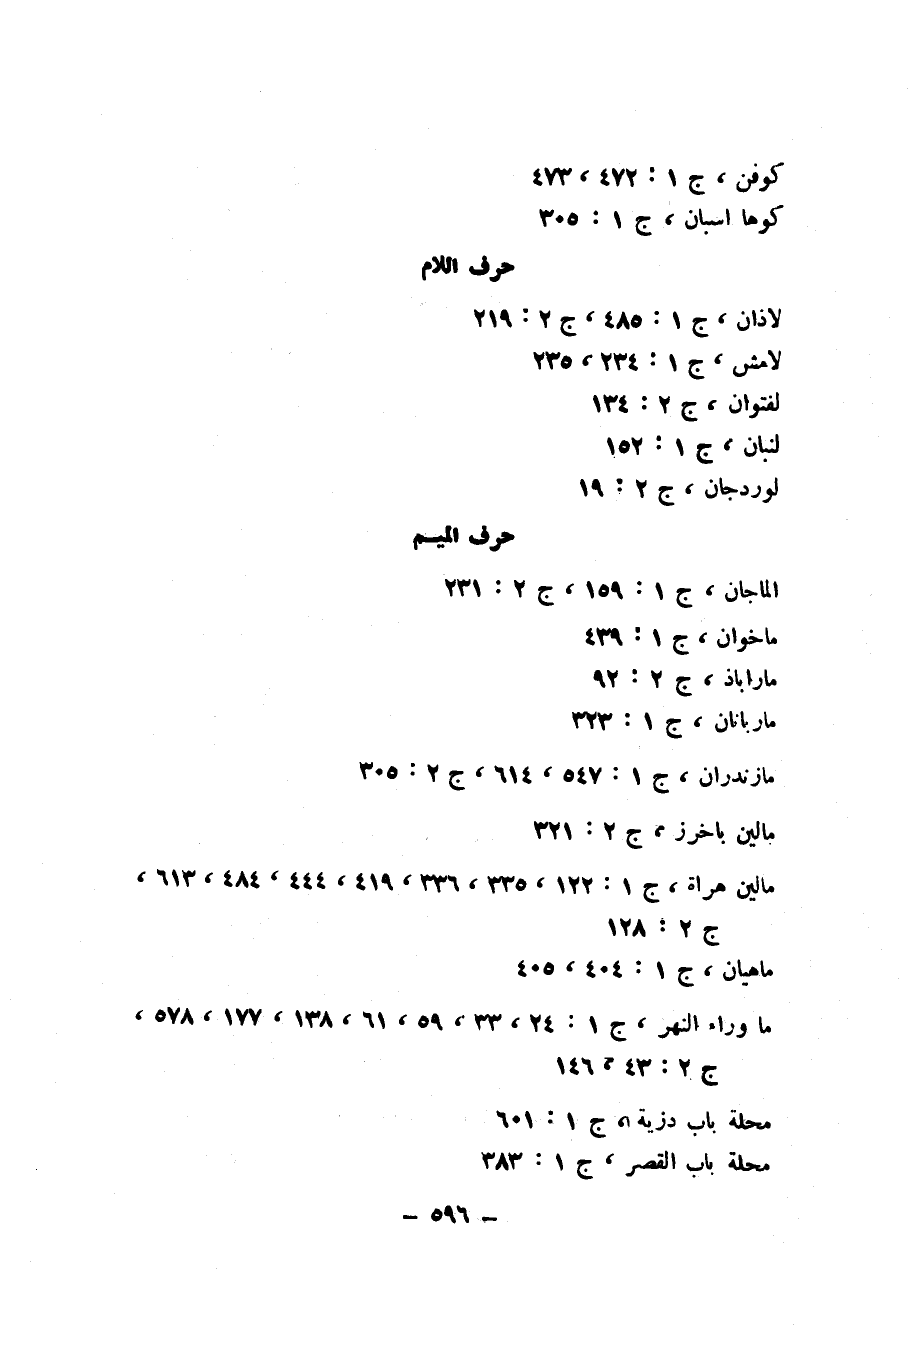 كوفن ، ج ١ : ٤٧٢ ، ٤٧٣
كوها اسبان ، ج ١ : ٣٠٥
حرف اللام
لاذان ، ج ١ : ٤٨٥ ، ج ٢ : ٢١٩
لامش ، ج ١ : ٢٣٤ ، ٢٣٥
لفتوان ، ج ٢ : ١٣٤
لنبان ، ج ١ : ١٥٢
لوردجان ، ج ٢ : ١٩
حرف الميـم
الماجان ، ج ١ : ١٥٩ ، ج ٢ : ٢٣١
ماخوان ، ج ١ : ٤٣٩
ماراباذ ، ج ٢ : ٩٢
ماربانان ، ج ١ : ٣٢٣
مازندران ، ج ١ : ٥٤٧ ، ٦١٤ ، ج ٢ : ٣٠٥
مالين باخرز ، ج ٢ : ٣٢١
مالين هراة ، ج ١ : ١٢٢ ، ٣٣٥ ، ٣٣٦ ، ٤١٩ ، ٤٤٤ ، ٤٨٤ ، ٦١٣ ،
ج ٢ : ١٢٨
ماهيان ، ج ١ : ٤٠٤ ، ٤٠٥
ما وراء النهر ، ج ١ : ٢٤ ، ٣٣ ، ٥٩ ، ٦١ ، ١٣٨ ، ١٧٧ ، ٥٧٨ ،
ج ٢ : ٤٣ ، ١٤٦
محلة باب دزية ، ج ١ : ٦٠١
محلة باب القصر ، ج ١ : ٣٨٣
– ٥٩٦ –